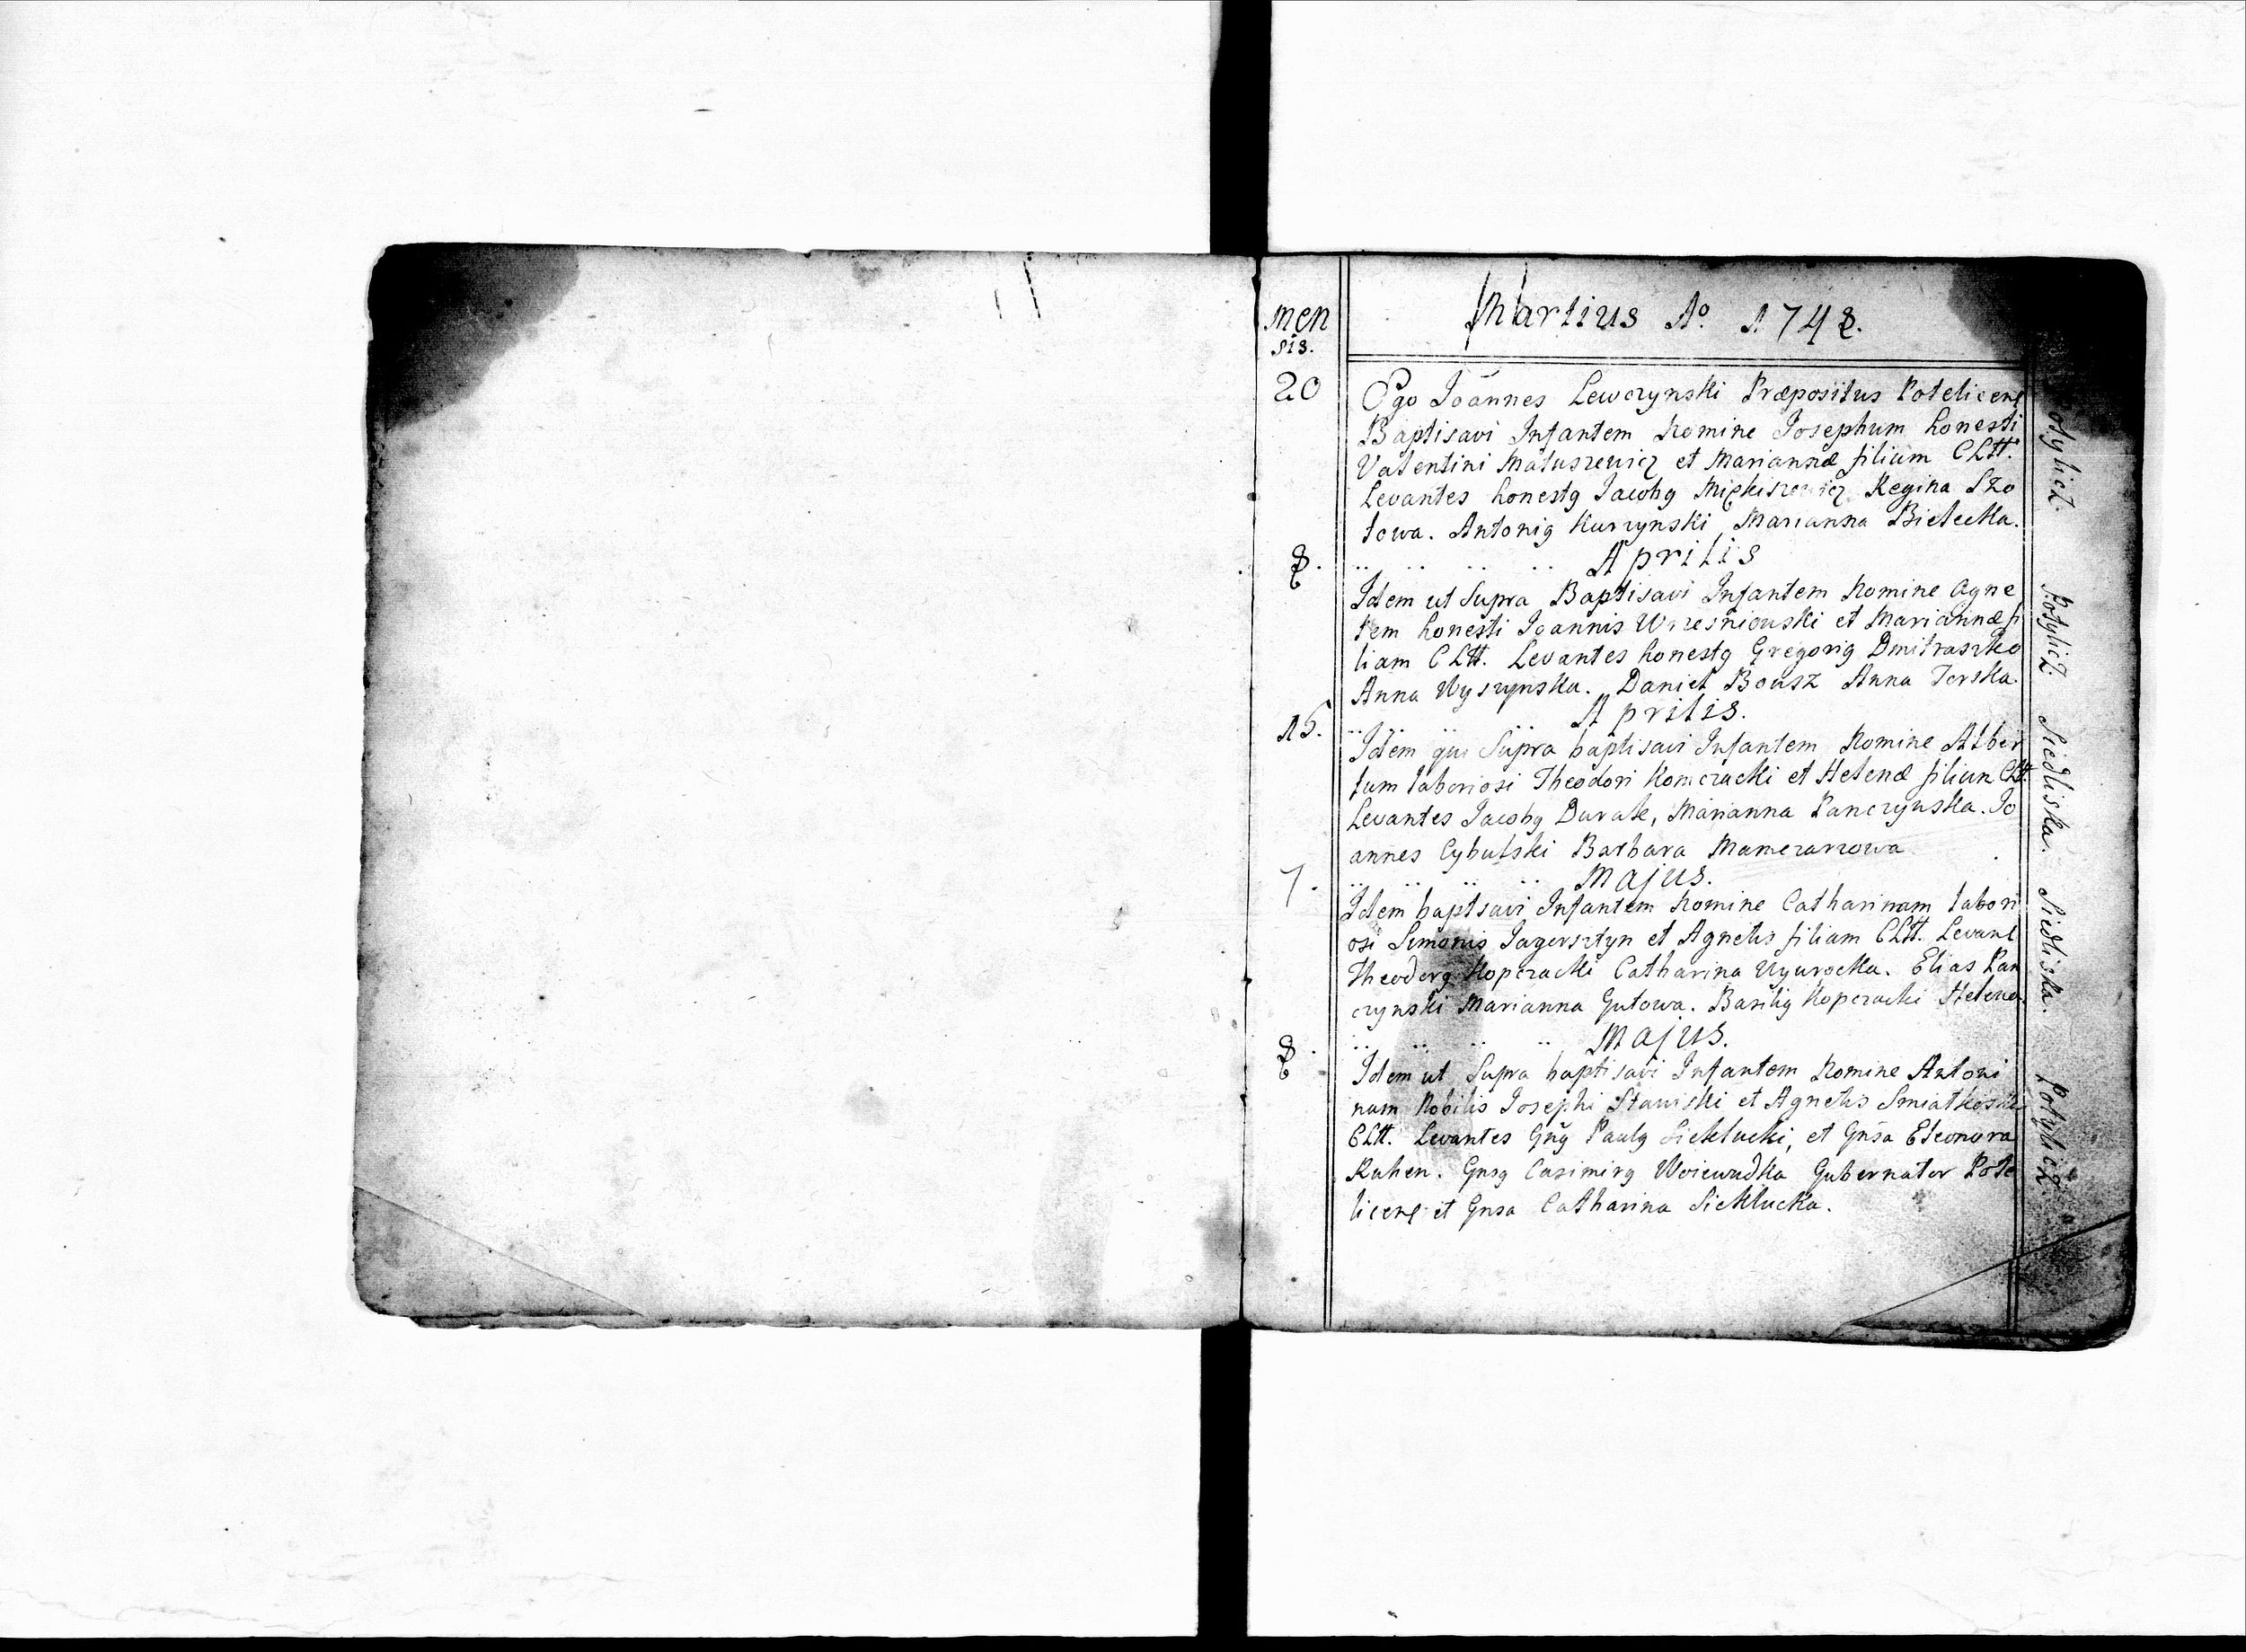 Mensis.
Martius Aº 1748.
20
Ego Joãnnes Lewczynski Præpositus Potelicens
Baptisavi Infantem Nomine Josephum honesti
Valentini Matuszewicz et Mariannæ filium CLtt.
Levantes honestg Jacobg Regina Szo
towa. Antonig Kurzynski Marianna Bielecka.
8. Aprilis
Idem ut Supra Baptisavi Infantem Nomine Agne
tem honesti Joannis Wrzesniowski et Mariannæ fi
liam CLtt. Levantes honestg Gregorig Dmitraszko
Anna Wyszynska. Daniel Bousz Anna Jerska.
15. Aprilis.
Idem qui Supra baptisavi Infantem Nomine Alber
tum laboriosi Theodori et Helenæ filium CLtt.
Levantes Jacobg Durak, Marianna Panczynska. Jo
annes Cybulski Barbara
7. Majus.
Idem baptsavi Infantem Nomine Catharinam labori
osi Simonis Jagersztyn et Agnetis filiam CLtt. Levant
Theodorg Kopczacki Catharina Elias Pan
czynski Marianna Gutowa. Basilig Kopczacki Helena.
8. Majus.
Idem ut Supra baptisavi Infantem Nomine Antoni
nam Nobilis Josephi Stawiski et Agnetis
CLtt. Levantes Gñg Paulg Sieklucki, et Gñsa Eleonora
Kuhen. Gnsg Casimirg Woiewudka Gubernator Pote
licens et Gnsa Catharina Sieklucka.
Potylicz.
Potylicz.
Siedliska.
Siedliska.
Potylicz.